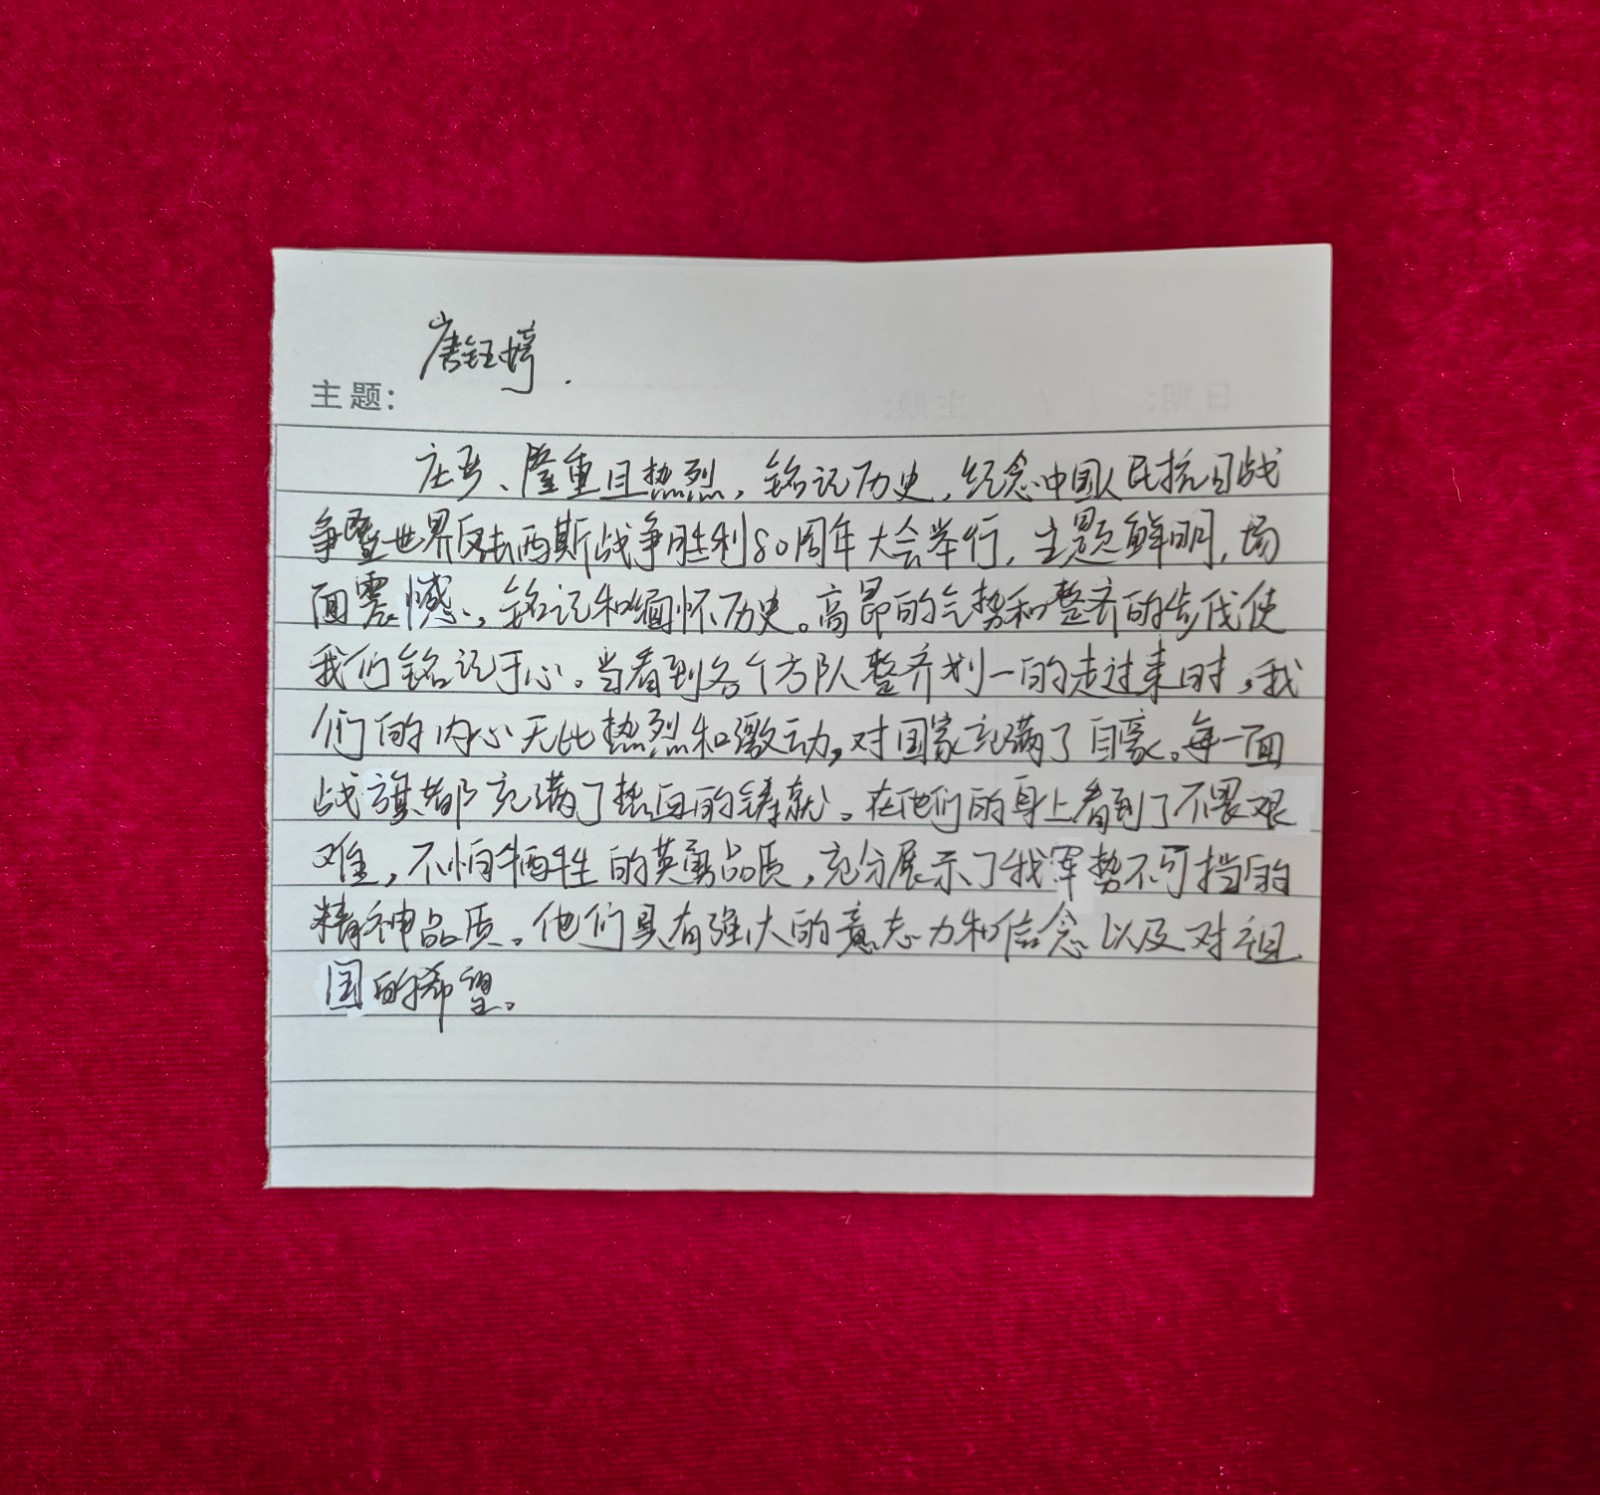 唐钰婷.
主题:
庄严、隆重且热烈，铭记历史，纪念中国人民抗日战
争暨世界反法西斯战争胜利80周年大会举行，主题鲜明，场
面震憾，铭记和缅怀历史。高昂的气势和整齐的步伐使
我们铭记于心。当看到各个方队整齐划一的走过来时，我
们的内心无比热烈和激动，对国家充满了自豪。每一面
战旗都充满了热血的铸就。在他们的身上看到了不畏艰
难，不怕牺牲的英勇品质，充分展示了我军势不可挡的
精神品质。他们具有强大的意志力和信念以及对祖
国的希望。